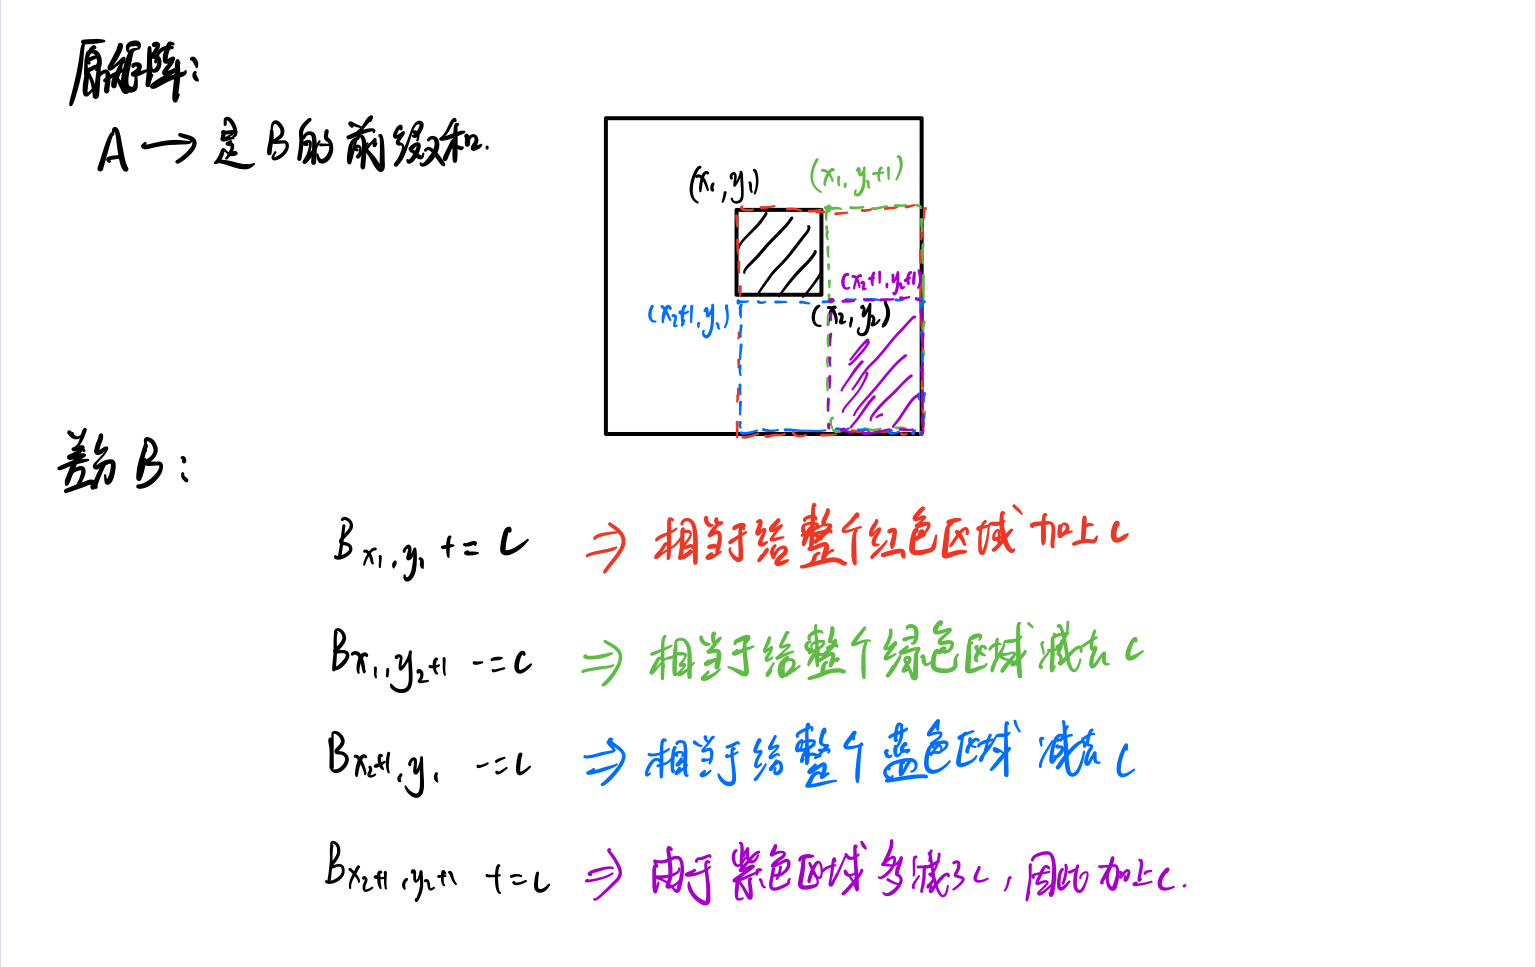 原矩阵:
A → 是B的前缀和.
(x₁,y₁)
(x₁,y₂+1)
(x₂+1,y₂+1)
(x₂+1,y₁)
(x₂,y₂)
差分B:
Bx₁,y₁ += C ⇒ 相当于给整个红色区域加上C
Bx₁,y₂+1 -= C ⇒ 相当于给整个绿色区域减去C
Bx₂+1,y₁ -= C ⇒ 相当于给整个蓝色区域减去C
Bx₂+1,y₂+1 += C ⇒ 由于紫色区域多减了C,因此加上C.